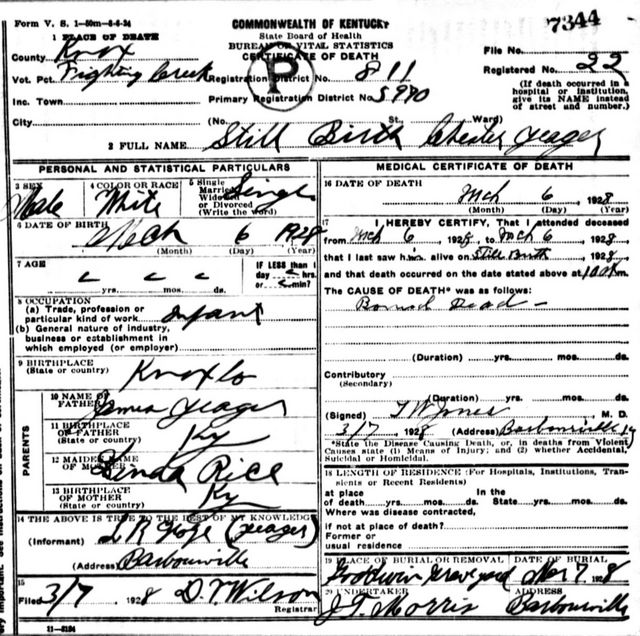 Form V. S. 1-50m-6-4-24
COMMONWEALTH OF KENTUCKY
7344
1 PLACE OF DEATH
State Board of Health
BUREAU OF VITAL STATISTICS
CERTIFICATE OF DEATH
County Knox
File No.
Vot. Pct. Fighting Creek Registration District No. 811
P
Registered No. 22
Inc. Town Primary Registration District No. 5990
(If death occurred in a hospital or institution, give its NAME instead of street and number.)
City (No. St. Ward)
2 FULL NAME Still Birth Chester Yeager
PERSONAL AND STATISTICAL PARTICULARS
3 SEX
Male
4 COLOR OR RACE
White
5 Single Married Widowed or Divorced (Write the word)
Single
6 DATE OF BIRTH
Mch 6 1928
(Month) (Day) (Year)
7 AGE
yrs. mos. ds.
IF LESS than 1 day hrs. or min?
8 OCCUPATION
(a) Trade, profession or
particular kind of work Infant
(b) General nature of industry,
business or establishment in
which employed (or employer)
9 BIRTHPLACE
(State or country) Knox Co
PARENTS
10 NAME OF
FATHER James Yeager
11 BIRTHPLACE
OF FATHER
(State or country) Ky
12 MAIDEN NAME
OF MOTHER Linda Rice
13 BIRTHPLACE
OF MOTHER
(State or country) Ky
14 THE ABOVE IS TRUE TO THE BEST OF MY KNOWLEDGE
(Informant) (Yeager)
(Address) Barbourville
15
Filed 3/7 1928 D. T. Wilson
Registrar
11-3184
MEDICAL CERTIFICATE OF DEATH
16 DATE OF DEATH
Mch 6 1928
(Month) (Day) (Year)
17 I HEREBY CERTIFY, That I attended deceased
from Mch 6, 1928, to Mch 6, 1928
that I last saw him alive on Still Birth, 1928,
and that death occurred on the date stated above at m.
The CAUSE OF DEATH* was as follows:
Borned Dead -
(Duration) yrs. mos. ds.
Contributory
(Secondary)
(Duration) yrs. mos. ds.
(Signed) T W Jones M. D.
3/7, 1928 (Address) Barbourville Ky
*State the Disease Causing Death, or, in deaths from Violent
Causes state (1) Means of Injury; and (2) whether Accidental,
Suicidal or Homicidal.
18 LENGTH OF RESIDENCE (For Hospitals, Institutions, Transients or Recent Residents)
at place In the
of death yrs. mos. ds. State yrs. mos. ds.
Where was disease contracted,
if not at place of death?
Former or
usual residence
19 PLACE OF BURIAL OR REMOVAL DATE OF BURIAL
Goodwin Graveyard Mar 7 1928
20 UNDERTAKER ADDRESS
J. T. Morris Barbourville